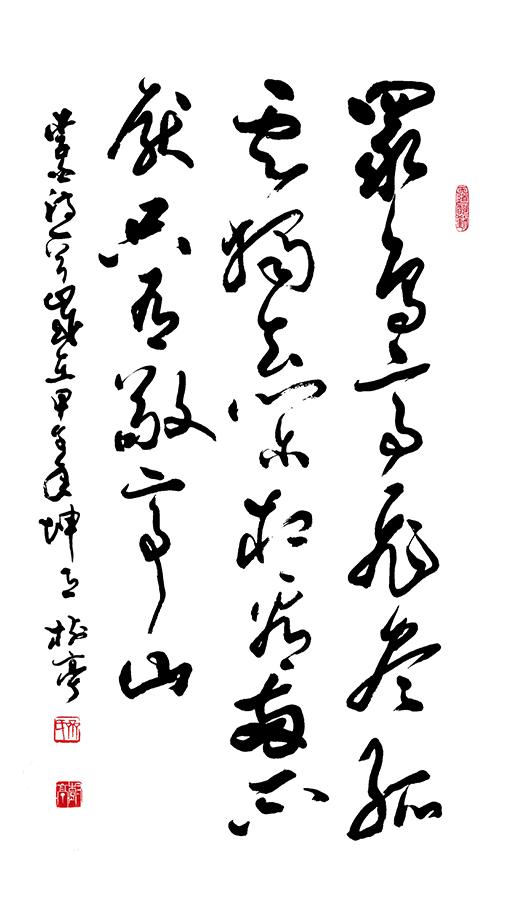 眾鳥高飛盡孤
雲獨去閒相看兩不
厭只有敬亭山
李白詩一首歲在甲午年坤樹亭